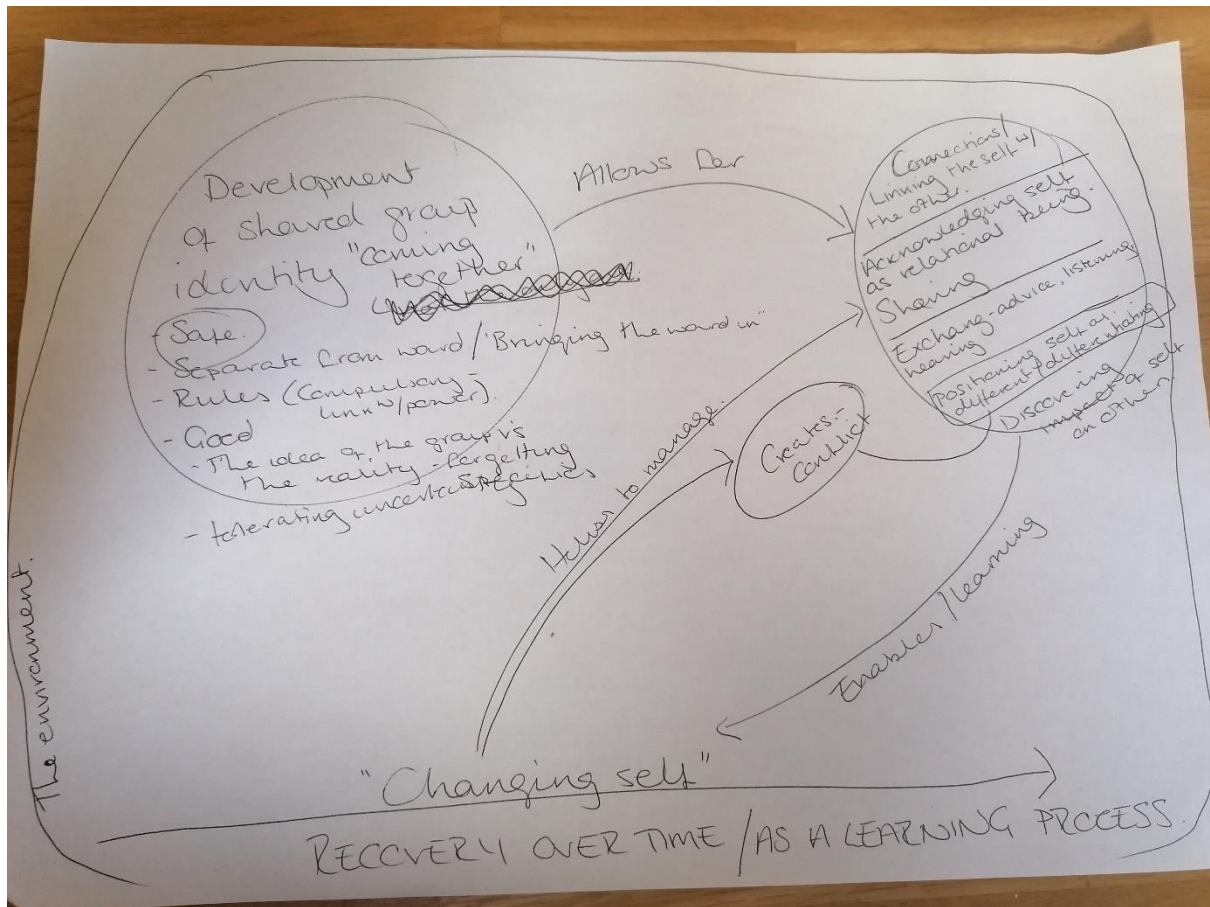 Development
of shared group
identity "coming
together"
- Safe.
- Separate from ward / 'Bringing the ward in"
- Rules (Compulsory -
link w/power).
- Good
- The idea of the group vs
the reality - forgetting
specifics
- tolerating
Allows for
Connections/
Linking the self w/
the other.
Acknowledging self
as relational being.
Sharing
Exchang - advice, listening,
hearing
Positioning self as
different / differentiating
Discovering
impact of self
on other.
Creates -
conflict
to manage.
Enables / learning
"Changing self"
RECOVERY OVER TIME / AS A LEARNING PROCESS.
The environment.